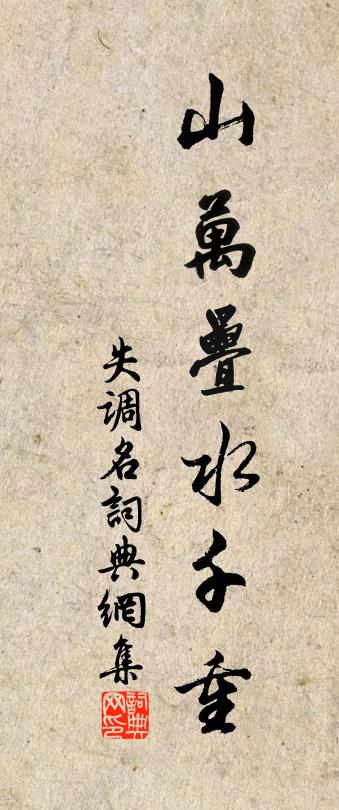 山萬疊水千重
失调名詞典網集
詞典网印